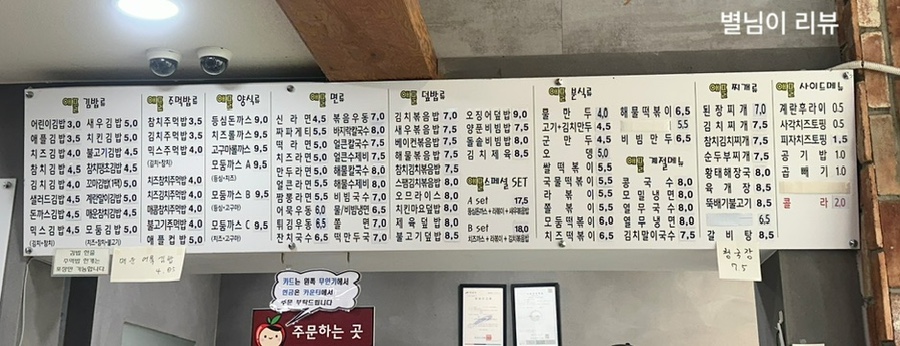 별님이 리뷰
애플 김밥류
어린이김밥 3.0
애플김밥 3.5
치즈김밥 4.0
참치김밥 4.5
김치김밥 4.5
샐러드김밥 4.5
돈까스김밥 4.5
믹스김밥 4.5
(김치+참치)
새우김밥 5.0
치킨김밥 5.0
불고기김밥 5.0
참치땡초김밥 5.0
꼬마김밥(1팩) 5.0
계란말이김밥 5.0
매운참치김밥 5.0
모듬김밥 5.0
(치즈+참치+불고기)
애플 주먹밥류
참치주먹밥 3.5
김치주먹밥 3.5
믹스주먹밥 4.0
(김치+참치)
치즈참치주먹밥 4.0
치즈김치주먹밥 4.0
매콤참치주먹밥 4.0
불고기주먹밥 4.5
애플컵밥 5.0
애플 양식류
등심돈까스 9.0
치즈롤까스 9.5
고구마롤까스 9.5
모둠까스 A 9.5
(등심+치즈)
모둠까스 B 9.5
(등심+고구마)
모둠까스 C 9.5
(치즈+고구마)
애플 면류
신라면 4.5
짜파게티 5.5
떡라면 5.0
치즈라면 5.0
만두라면 5.0
얼큰라면 5.5
짬뽕라면 5.5
어묵우동 6.0
튀김우동 6.5
잔치국수 6.5
볶음우동 7.0
바지락칼국수 8.0
얼큰칼국수 7.5
얼큰수제비 7.5
해물칼국수 8.0
해물수제비 8.0
비빔국수 7.0
물/비빔냉면 6.5
쫄면 7.0
떡만두국 7.0
애플 덮밥류
김치볶음밥 7.0
새우볶음밥 7.5
베이컨볶음밥 7.5
해물볶음밥 7.5
참치김치볶음밥 7.5
스팸김치볶음밥 8.0
오므라이스 8.0
치킨마요덮밥 8.0
제육덮밥 8.0
불고기덮밥 8.5
오징어덮밥 9.0
양푼비빔밥 7.5
돌솥비빔밥 8.0
김치제육 8.5
애플스페셜 SET
A set 17.5
등심돈까스 + 라볶이 + 새우볶음밥
B set 18.0
치즈까스 + 라볶이 + 김치볶음밥
애플 분식류
물만두 4.0
고기+김치만두 4.5
군만두 4.5
오뎅 5.0
쌀떡볶이 5.5
국물떡볶이 5.5
라볶이 5.5
쫄볶이 5.5
모듬떡볶이 6.5
치즈떡볶이 6.5
해물떡볶이 6.5
5.5
비빔만두 6.5
애플 계절메뉴
콩국수 8.0
열무국수 8.0
열무냉면 8.0
물냉면 8.0
김치말이국수 7.5
애플 찌개류
된장찌개 7.0
김치찌개 7.5
참치찌개 7.5
순두부찌개 7.5
황태해장국 8.0
육개장 8.5
뚝배기불고기 8.5
6.5
갈비탕 8.5
애플 사이드메뉴
계란후라이 0.5
사각치즈토핑 0.5
피자치즈토핑 1.5
공기밥 1.0
곱빼기 1.0
콜라 2.0
김밥 한줄
주먹밥 한개는
포장만 가능합니다
매운 어묵김밥
4.05
청국장
7.5
카드는 왼쪽 무인기에서
현금은 카운터에서
주문 부탁드립니다
주문하는 곳